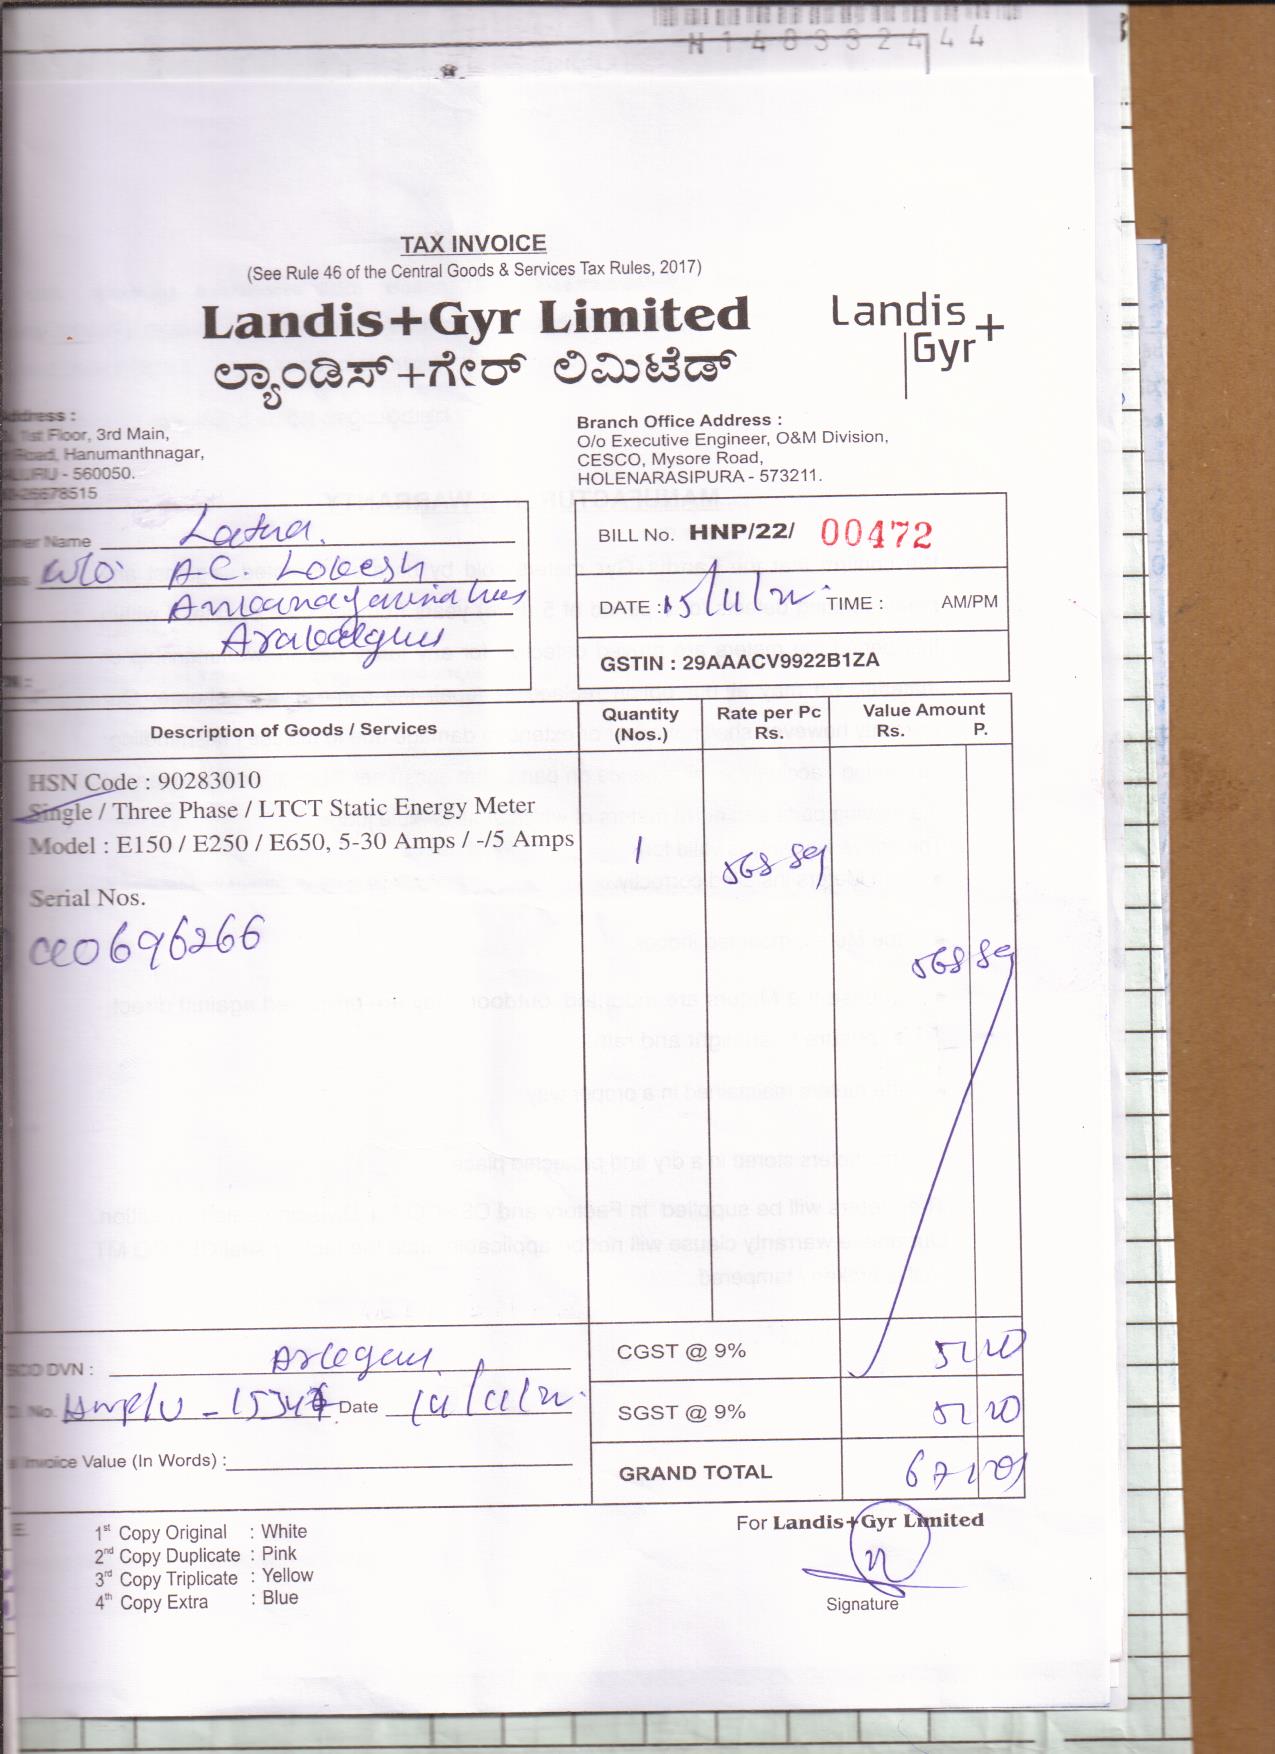 N148332444
TAX INVOICE
(See Rule 46 of the Central Goods & Services Tax Rules, 2017)
Landis+Gyr Limited
ಲ್ಯಾಂಡಿಸ್+ಗೇರ್ ಲಿಮಿಟೆಡ್
Landis
Gyr+
Address :
1st Floor, 3rd Main,
Road, Hanumanthnagar,
- 560050.
25678515
Branch Office Address :
O/o Executive Engineer, O&M Division,
CESCO, Mysore Road,
HOLENARASIPURA - 573211.
Name Latha.
W/o A.C. Lokesh
BILL No. HNP/22/ 00472
DATE : 15/11/22. TIME : AM/PM
GSTIN : 29AAACV9922B1ZA
Description of Goods / Services Quantity (Nos.) Rate per Pc Rs. Value Amount Rs. P.
HSN Code : 90283010
Single / Three Phase / LTCT Static Energy Meter
Model : E150 / E250 / E650, 5-30 Amps / -/5 Amps 1 568 89
Serial Nos.
0696266
568 89
DVN :
CGST @ 9% 51 20
No. Date
SGST @ 9% 51 20
Invoice Value (In Words) :
GRAND TOTAL 671
1st Copy Original : White
2nd Copy Duplicate : Pink
3rd Copy Triplicate : Yellow
4th Copy Extra : Blue
For Landis+Gyr Limited
Signature